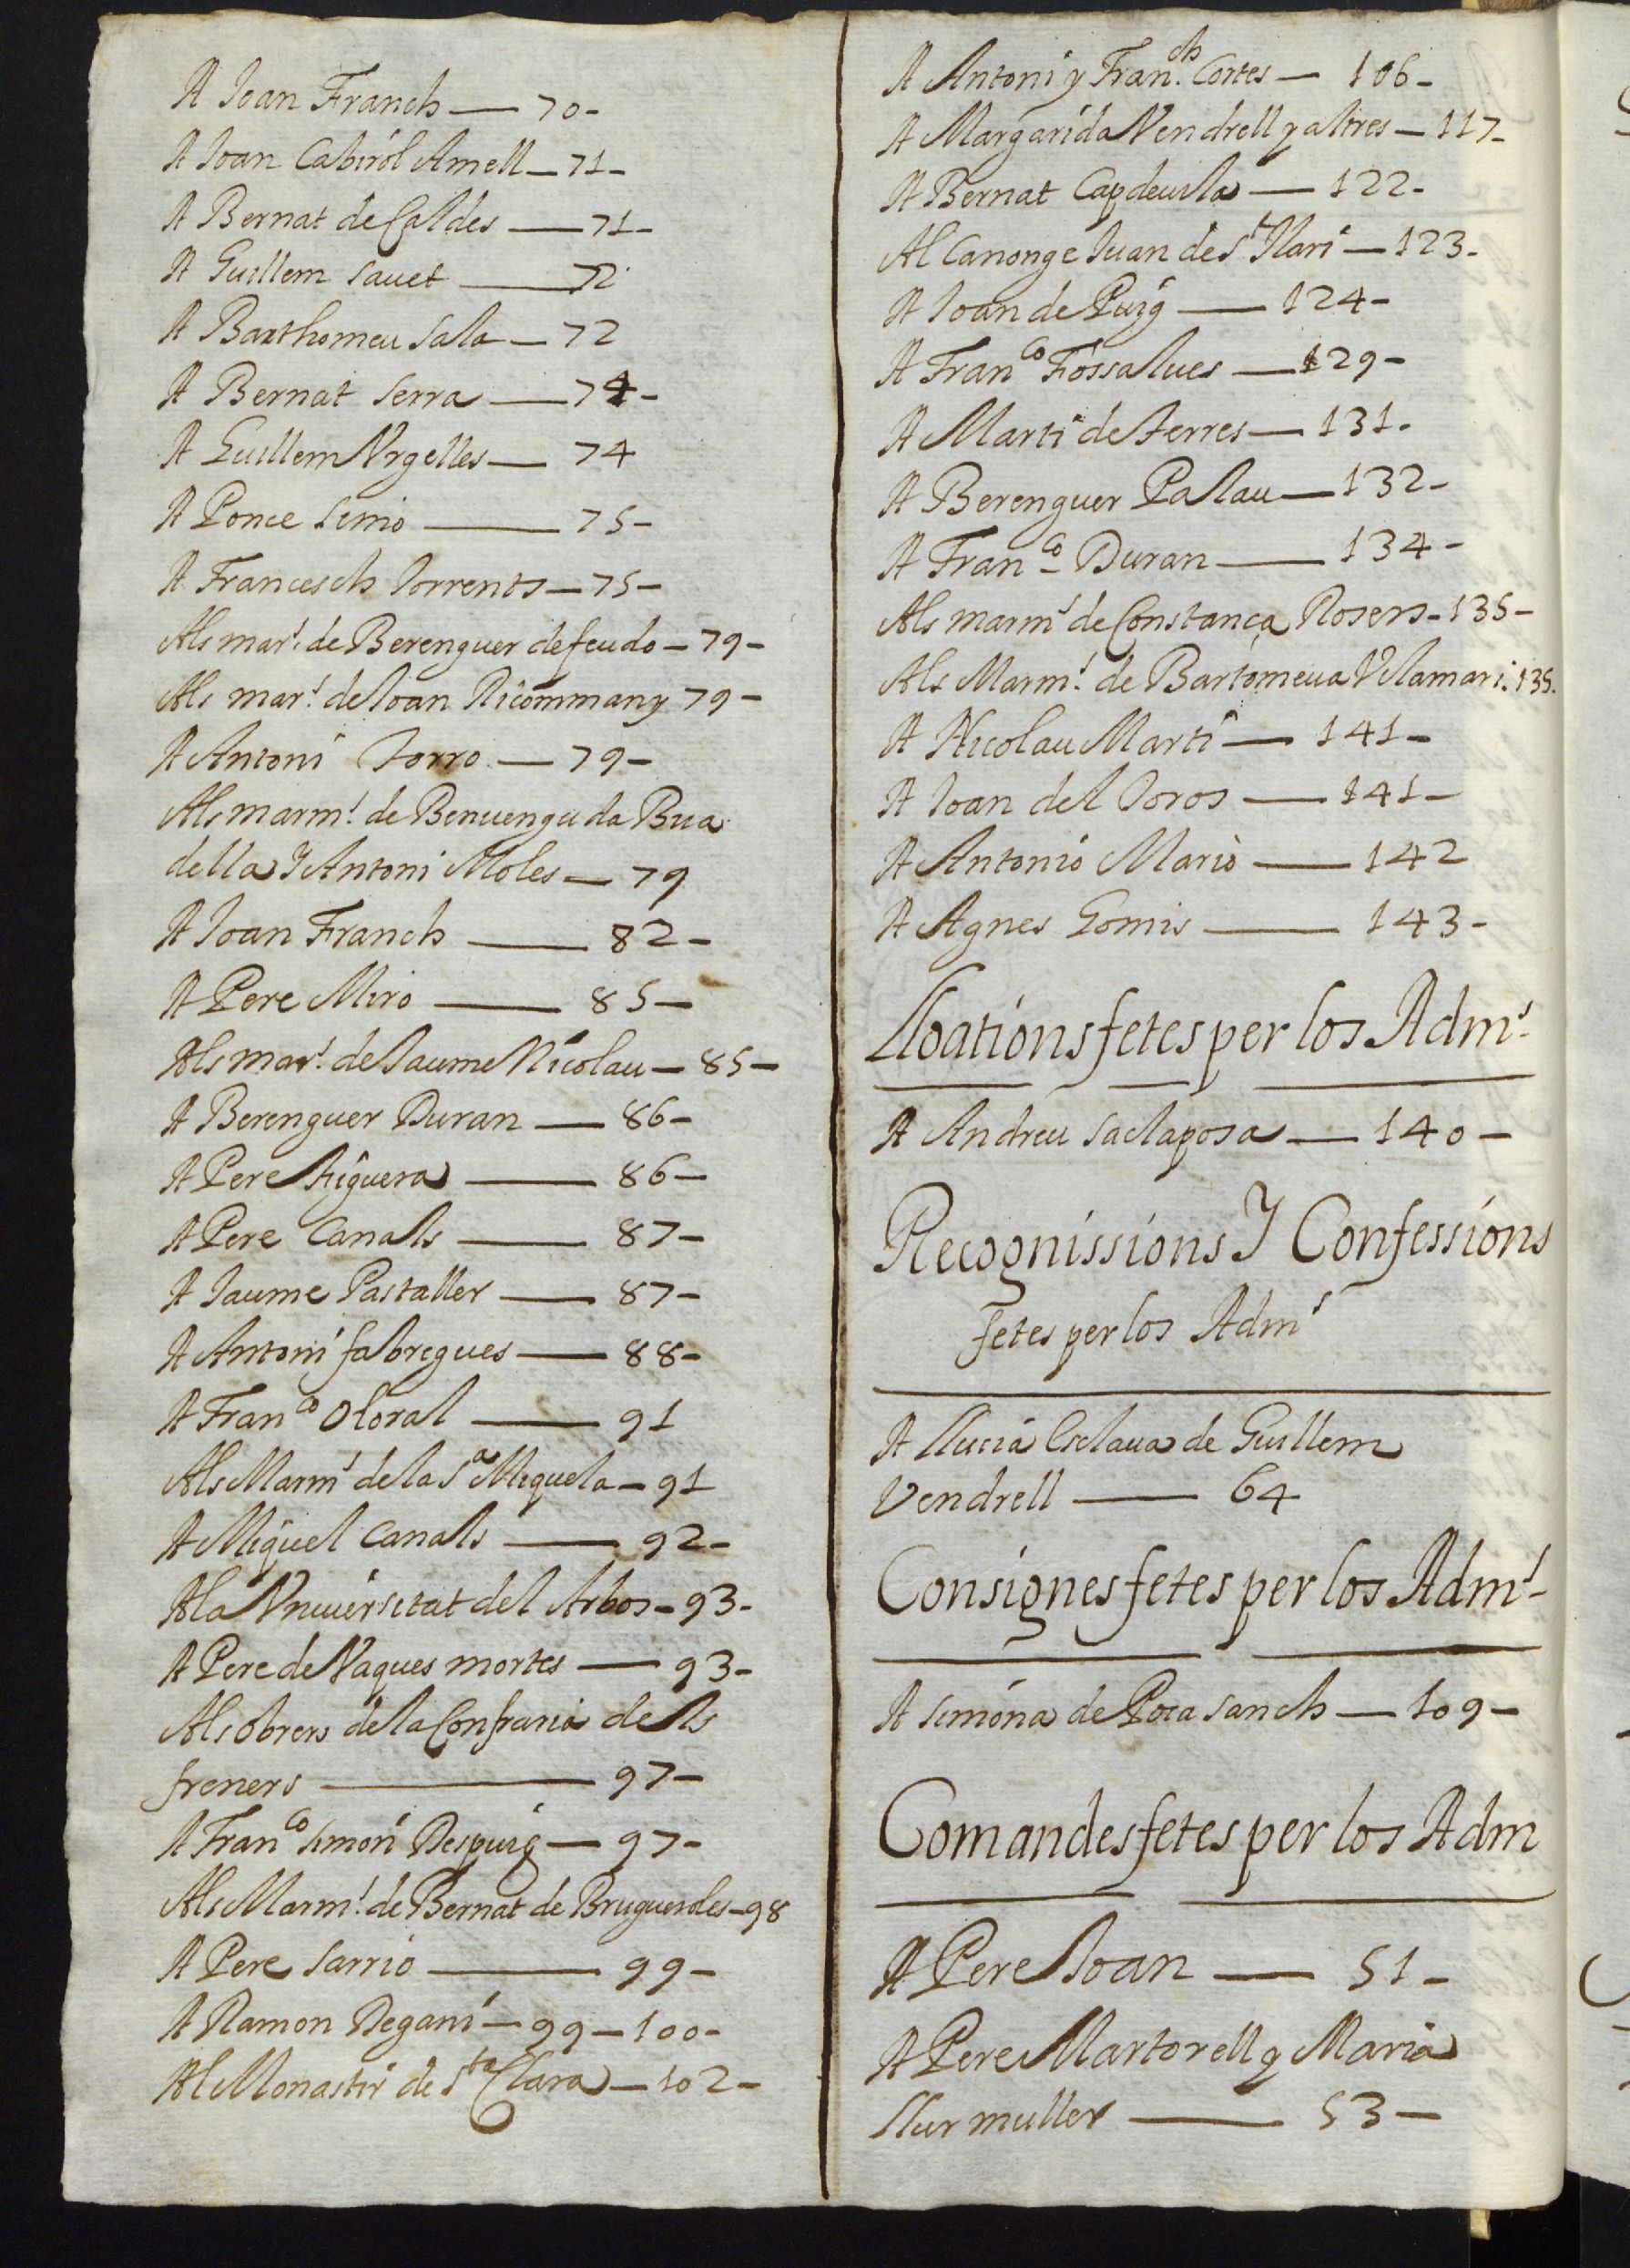 A Joan Franch — 70 -
A Joan Cabirol Amell — 71 -
A Bernat de Caldes — 71 -
A Guillem Sauet — 72
A Barthomeu Sala — 72
A Bernat Serra — 74 -
A Guillem Vrgelles — 74
A Ponce Simo — 75 -
A Francesch Torrents — 75 -
Als mar.s de Berenguer de feudo — 79 -
Als mar.s de Joan Ricommany 79 -
A Antoni Torro — 79 -
Als marm.s de Benuenguda Bua
della Y Antoni Moles — 79
A Joan Franch — 82 -
A Pere Miro — 85 —
Als mar.s de Jaume Nicolau — 85 —
A Berenguer Duran — 86 -
A Pere Figuera — 86 —
A Pere Canals — 87 -
A Jaume Pastaller — 87 -
A Antoni fabregues — 88 -
A Fran.co Oloral — 91
Als Marm.s de la S.a Miquela — 91
A Miquel Canals — 92 -
A la Vniuersitat del Arbos — 93 -
A Pere de Vaques mortes — 93 -
Als obrers de la Confraria dels
freners — 97 —
A Fran.co Simon Despuig — 97 -
Als Marm.s de Bernat de Brugueroles — 98
A Pere Sarrio — 99 -
A Ramon Degani — 99 — 100 -
Al Monastir de S.ta Clara — 102 -
A Antoni y Fran.ch Cortes — 106 -
A Margarida Vendrell y altres — 117 -
A Bernat Capdeuila — 122 -
Al Canonge Juan de S.t Ilari — 123 -
A Joan de Puig — 124 -
A Fran.co Fossalues — 129 -
A Marti de Ferres — 131 .
A Berenguer Palau — 132 -
A Fran.co Duran — 134 -
Als marm.s de Constança Rosers - 135 -
Als Marm.s de Bartomeua Vilamari . 135 .
A Nicolau Marti — 141 -
A Joan del Toros — 141 -
A Antonio Mario — 142
A Agnes Gomis — 143 -
Lloations fetes per los Adm.s
A Andreu Saclaposa — 140 —
Recognissions Y Confessions
fetes per los Adm.s
A Llucia Esclaua de Guillem
Vendrell — 64
Consignes fetes per los Adm.s
A Simona de Poca sanch — 109 —
Comandes fetes per los Adm
A Pere Joan — 51 -
A Pere Martorell y Maria
Llur muller — 53 —